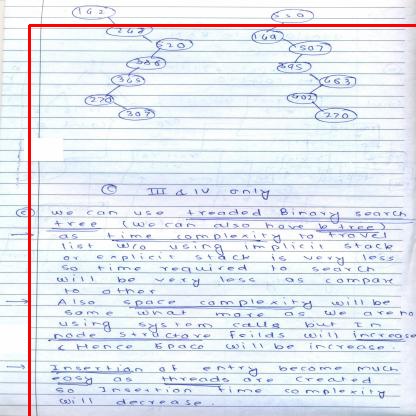 142
248
520
386
345
270
307
550
149
507
395
463
402
270
© III & IV only
© we can use treaded Binary search
tree (we can also have b tree)
→ as time complexity to travel
list w/o using implicit stack
or explicit stack is very less
so time required to search
will be very less as compare
to other
→ Also space complexity will be
some what more as we are no
using system calls but in
node structure feilds will increase
& Hence space will be increase.
→ Insertion of entry become much
easy as threads are created
so Insertion time complexity
will decrease.